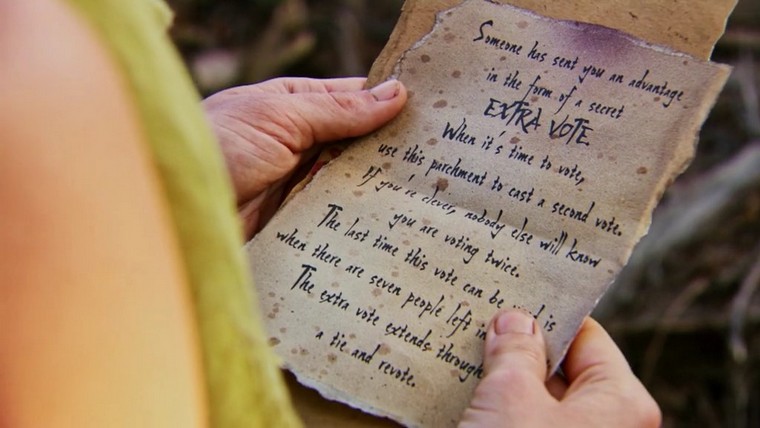 Someone has sent you an advantage
in the form of a secret
EXTRA VOTE.
When it's time to vote,
use this parchment to cast a second vote.
If you're clever, nobody else will know
you are voting twice.
The last time this vote can be is
when there are seven people left in
The extra vote extends through
a tie and revote.